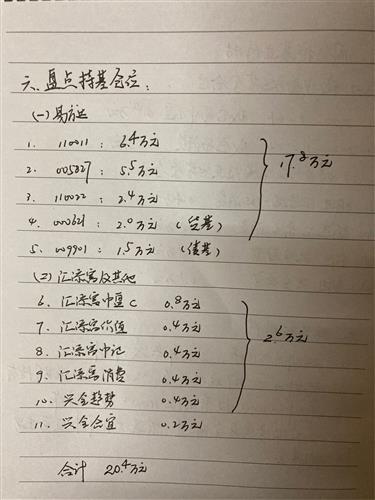 六、盘点持基仓位:
(一)易方达
1. 110011: 6.4万元
2. 005827: 5.5万元
3. 110022: 2.4万元
17.8万元
4. 000621: 2.0万元 (债基)
5. 009901: 1.5万元 (债基)
(2)汇添富及其他
6. 汇添富中盘C 0.8万元
7. 汇添富价值 0.4万元
2.6万元
8. 汇添富中记 0.4万元
9. 汇添富消费 0.4万元
10. 兴全趋势 0.4万元
11. 兴全合宜 0.2万元
合计 20.4万元